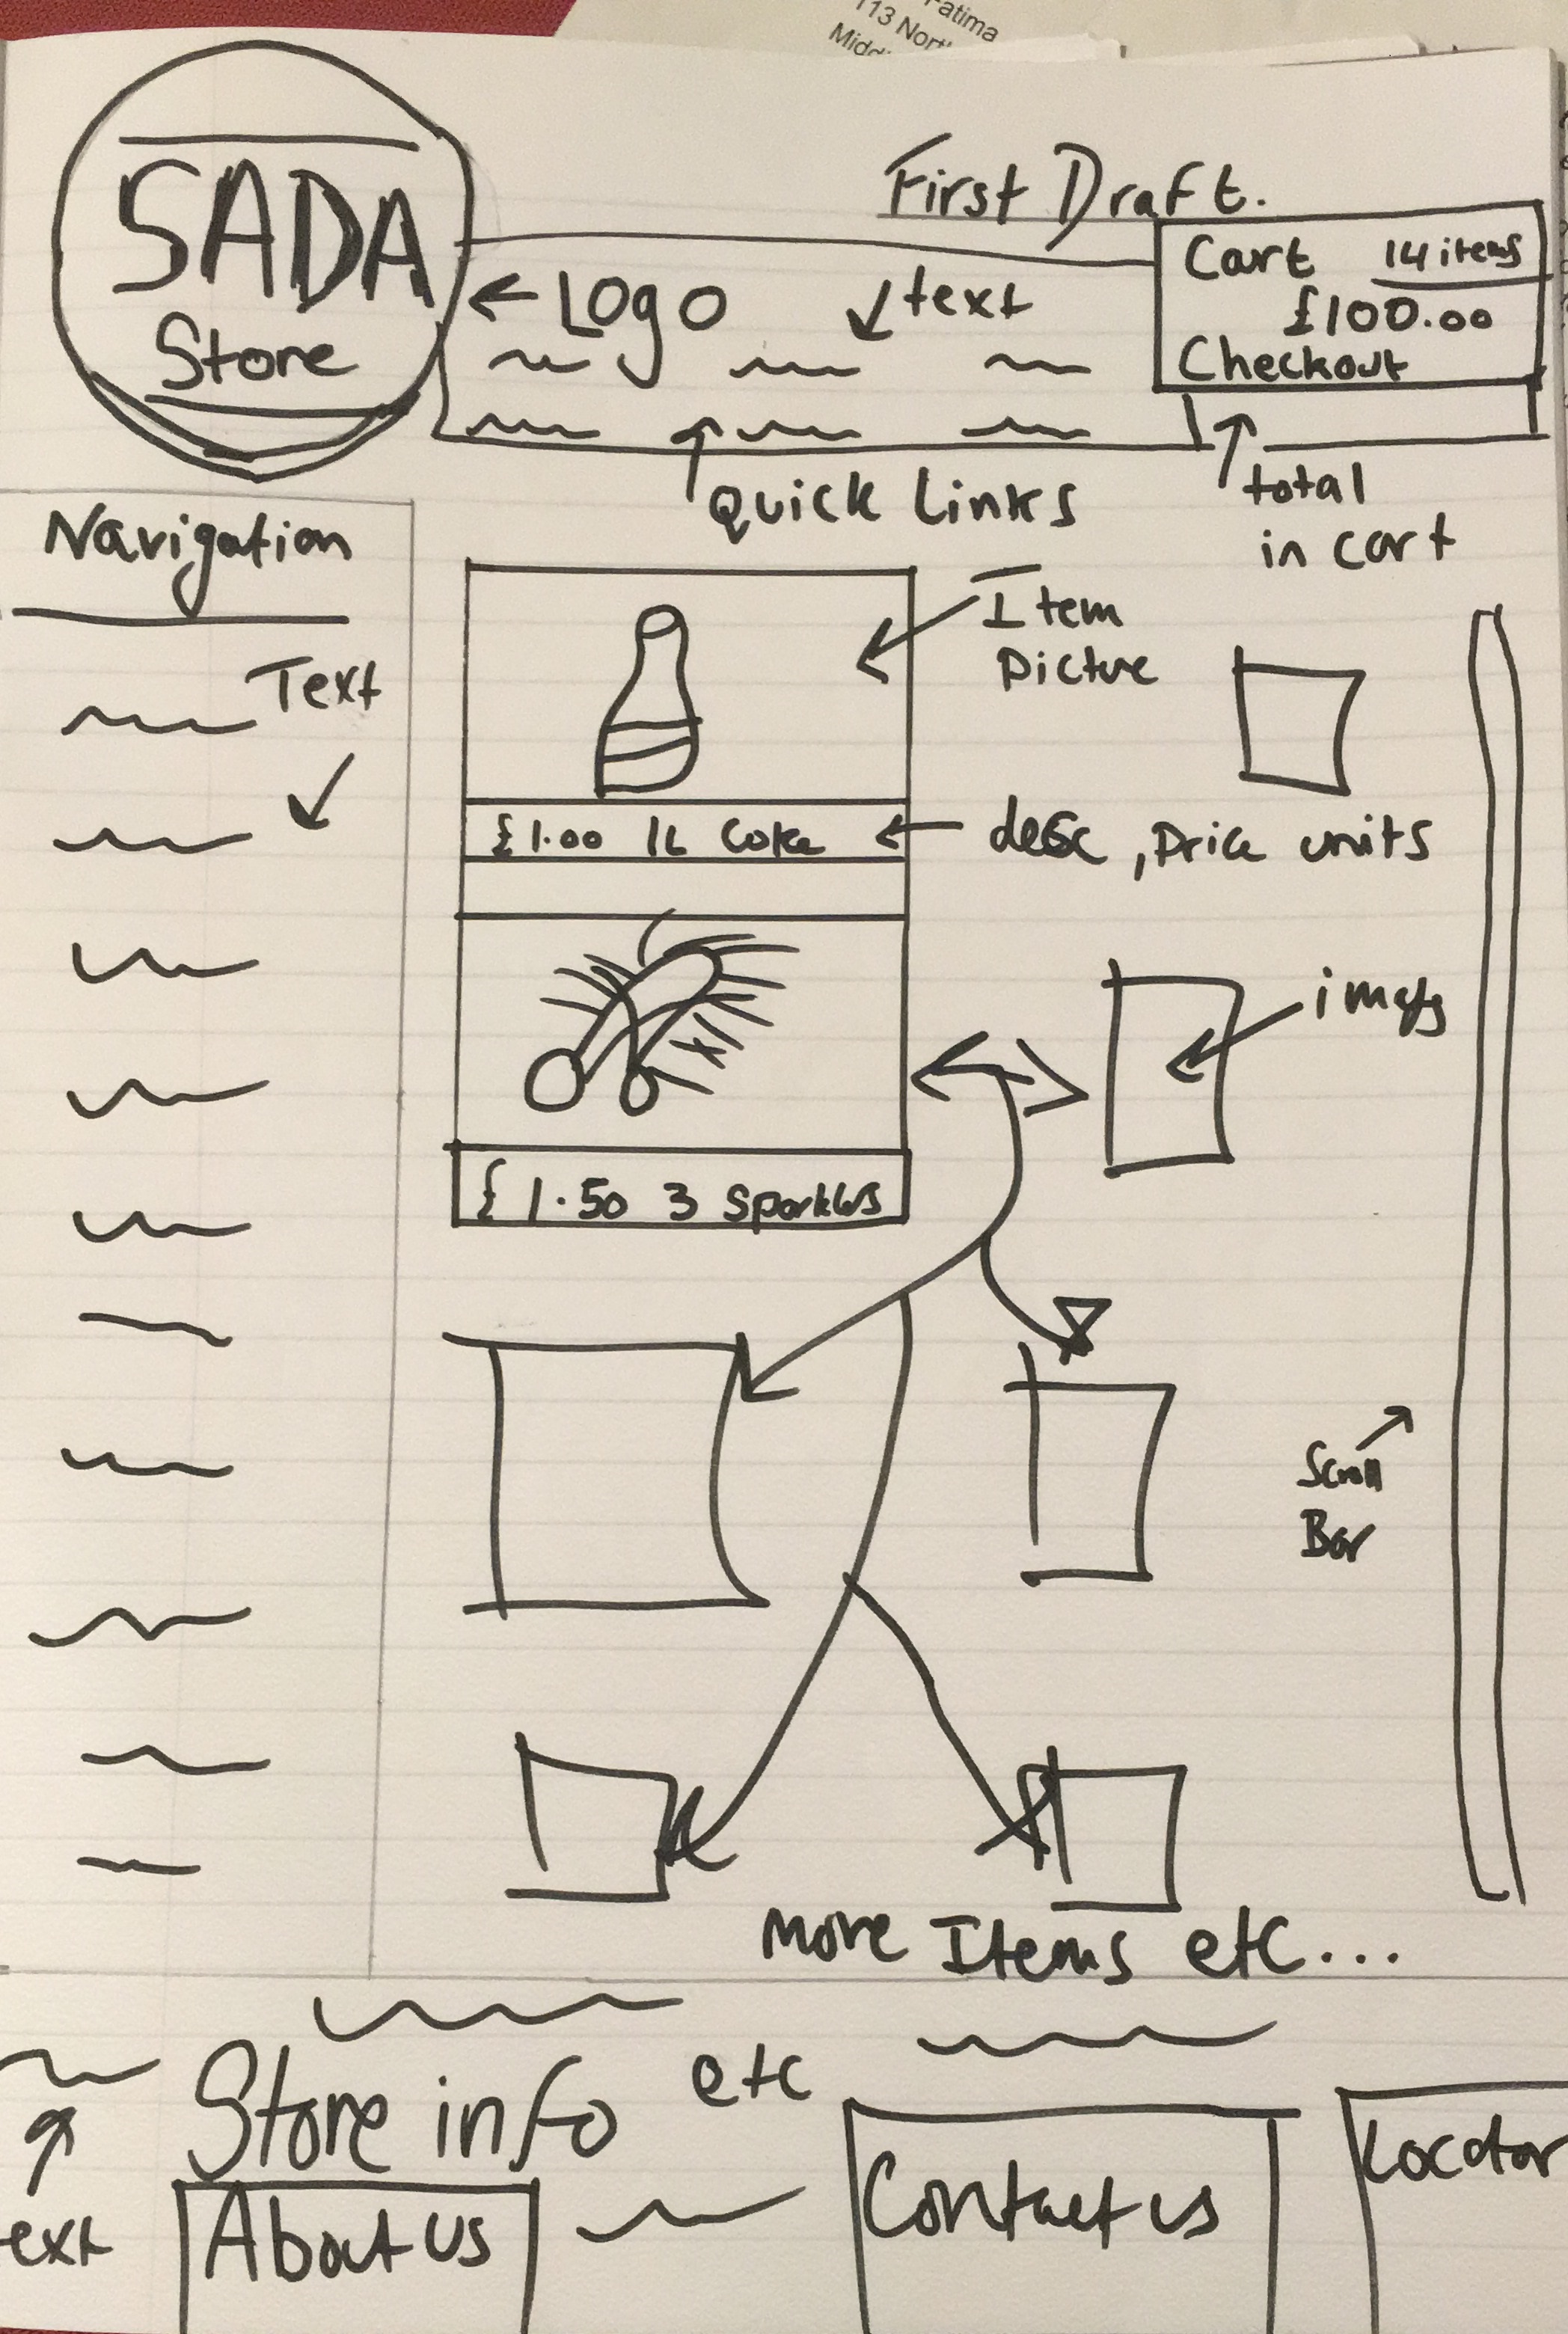 atima
113 Nort
Midd
First Draft.
SADA
Store
← Logo
text
Cart 14 items
£100.00
Checkout
Quick Links
total
in cart
Navigation
Text
Item
Picture
£1.00 1L Coke
desc, Price units
£1.50 3 Sparklers
Scroll
Bar
More Items etc...
Store info etc
ext
About us
Contact us
Locator